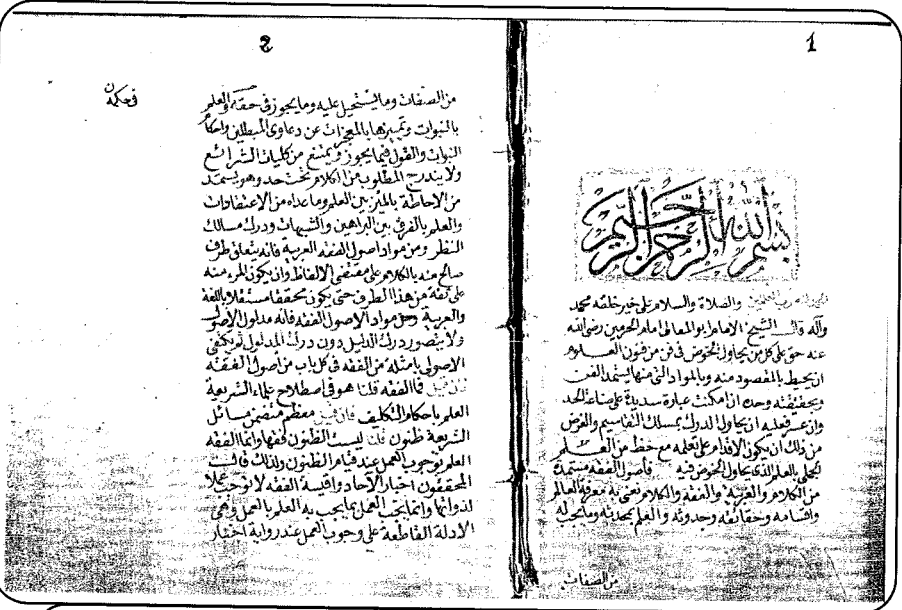 1
بسم الله الرحمن الرحيم
الحمد لله رب العالمين والصلاة والسلام على خير خلقه محمد
وآله قال الشيخ الامام ابو المعالى امام الحرمين رضى الله
عنه حق على كل من يحاول الخوض فى فن من فنون العلوم
ان يحيط بالمقصود منه وبالمواد التى منها يستمد الفن
وبحقيقته وحده ان امكنت عبارة سديدة على صناعة الحد
وان عسر فعليه ان يحاول الدرك بمسلك التقاسيم والغرض
من ذلك ان يكون الاقدام على تعلمه مع حظ من العلم
الجملى بالعلم الذى يحاول الخوض فيه فاصول الفقه مستمدة
من الكلام والعربية والفقه والكلام نعنى به معرفة العالم
واقسامه وحقائقه وحدوثه والعلم بمحدثه وما يجب له
من الصفات
2
من الصفات وما يستحيل عليه وما يجوز فى حقه والعلم
فى حكمه
بالنبوات وتمييزها بالمعجزات عن دعاوى المبطلين واحكام
النبوات والقول فيما يجوز ويمتنع من كليات الشرائع
ولا يندرج المطلوب من الكلام تحت حد وهو يستمد
من الاحاطة بالميز بين العلم وما عداه من الاعتقادات
والعلم بالفرق بين البراهين والشبهات ودرك مسالك
النظر ومن مواد اصول الفقه العربية فانه يتعلق طرف
صالح منه بالكلام على مقتضى الالفاظ ولن يكون المرء منه
على ثقة من هذا الطرف حتى يكون محققا مستقلا باللغة
والعربية ومن مواد الاصول الفقه فانه مدلول الاصول
ولا يتصور درك الدليل دون درك المدلول ثم يكتفى
الاصولى بامثلة من الفقه فى كل باب من اصول الفقه
فان قيل فما الفقه قلنا هو فى اصطلاح علماء الشريعة
العلم باحكام التكليف فان قيل معظم متضمن مسائل
الشريعة ظنون قلنا ليست الظنون فقها وانما الفقه
العلم بوجوب العمل عند قيام الظنون ولذلك قالت
المحققون اخبار الآحاد واقيسة الفقه لا توجب عملا
لذواتها وانما يجب العمل بما يجب به العلم بالعمل وهى
الادلة القاطعة على وجوب العمل عند رواية اخبار